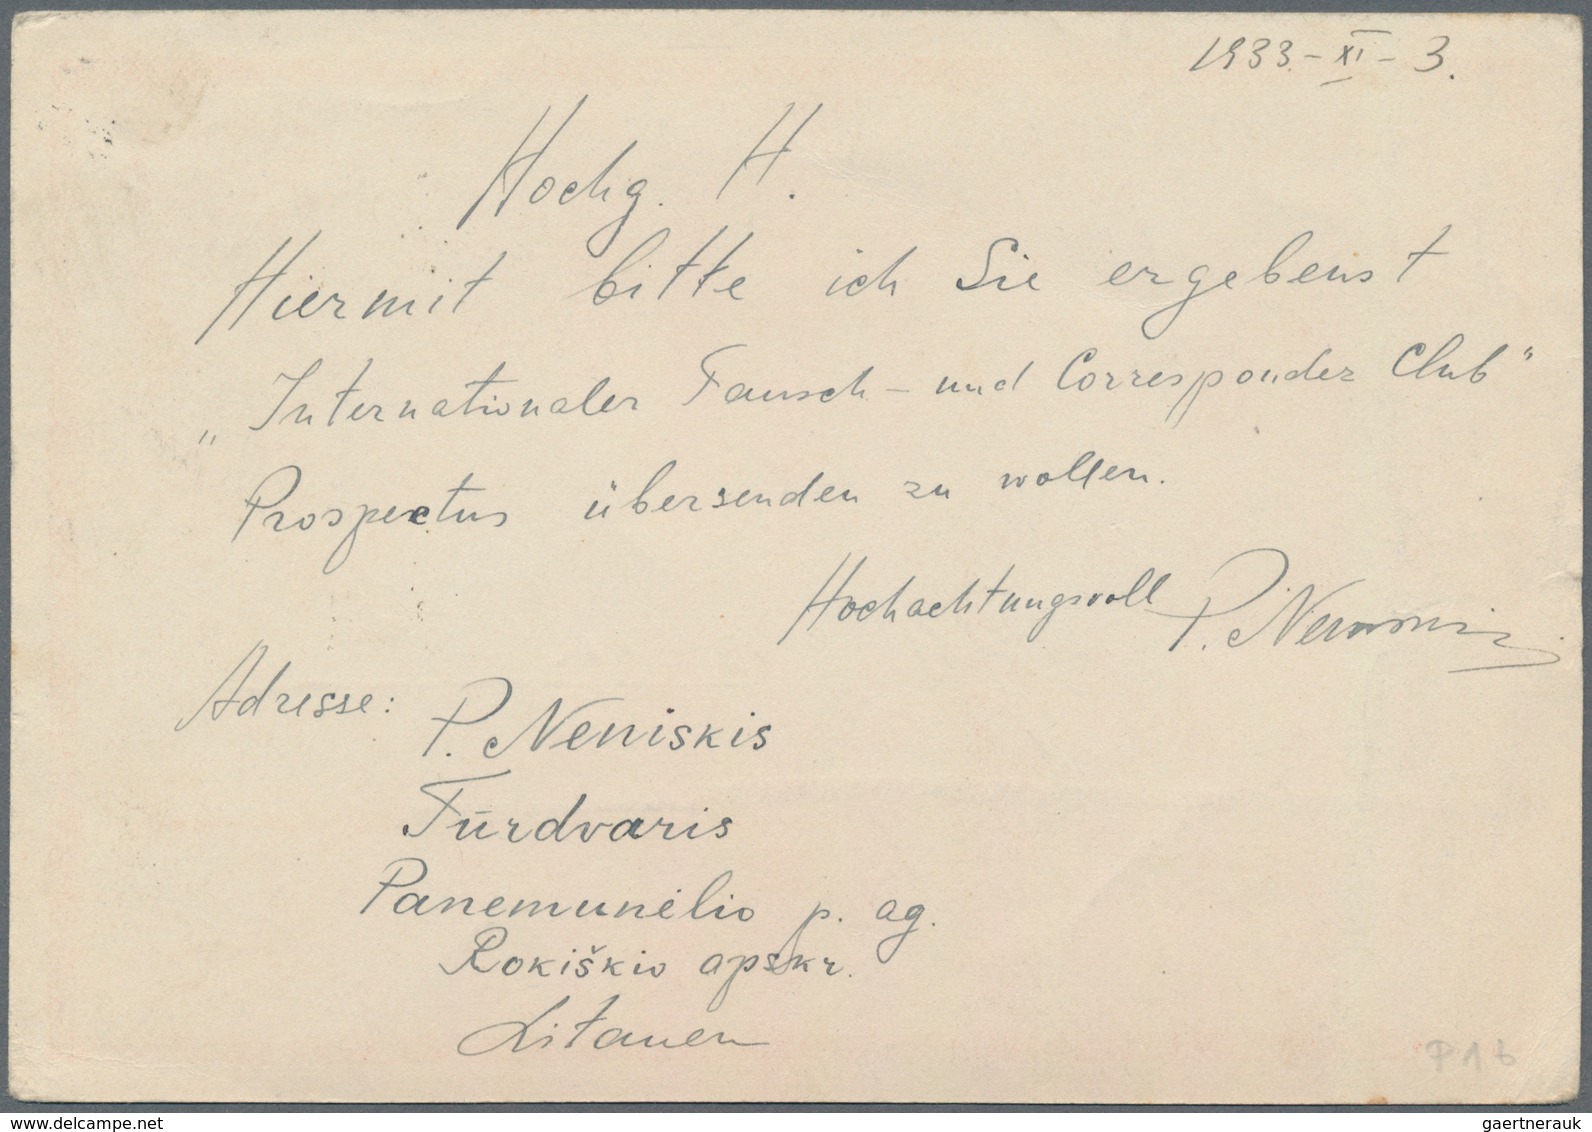 1933.-XI-3.
Hochg. H.
Hiermit bitte ich Sie ergebenst
„Internationaler Tausch- und Correspondez Club"
Prospectus übersenden zu wollen.
Hochachtungsvoll P.
Adresse:
P. Neniskis
Tūrdvaris
Panemunėlio p. ag.
Rokiškio apskr.
Litauen
P 1 b
www.delcampe.net
gaertnerauk